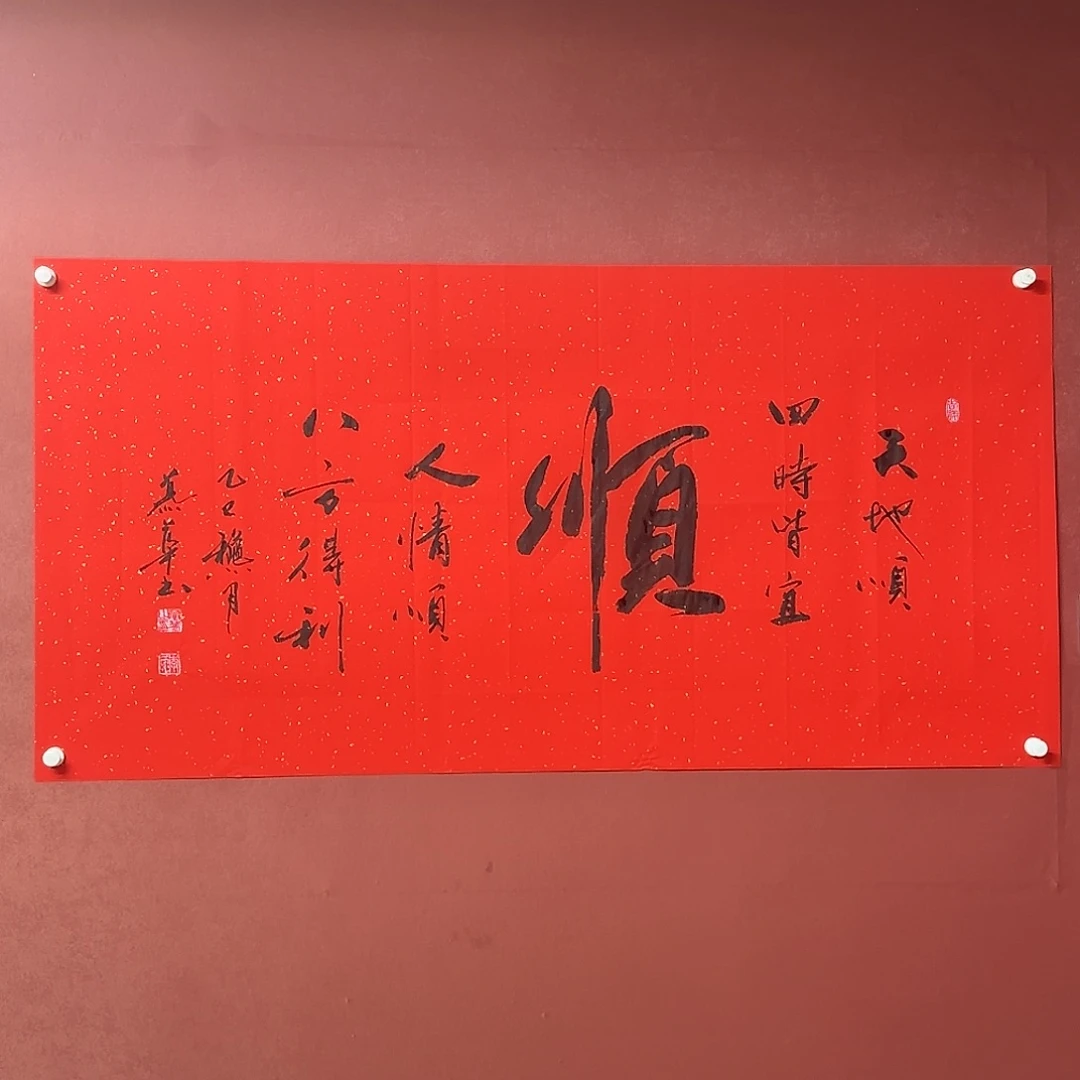 天地順
四時皆宜
順
人情順
八方得利
乙巳穐月
燕華书